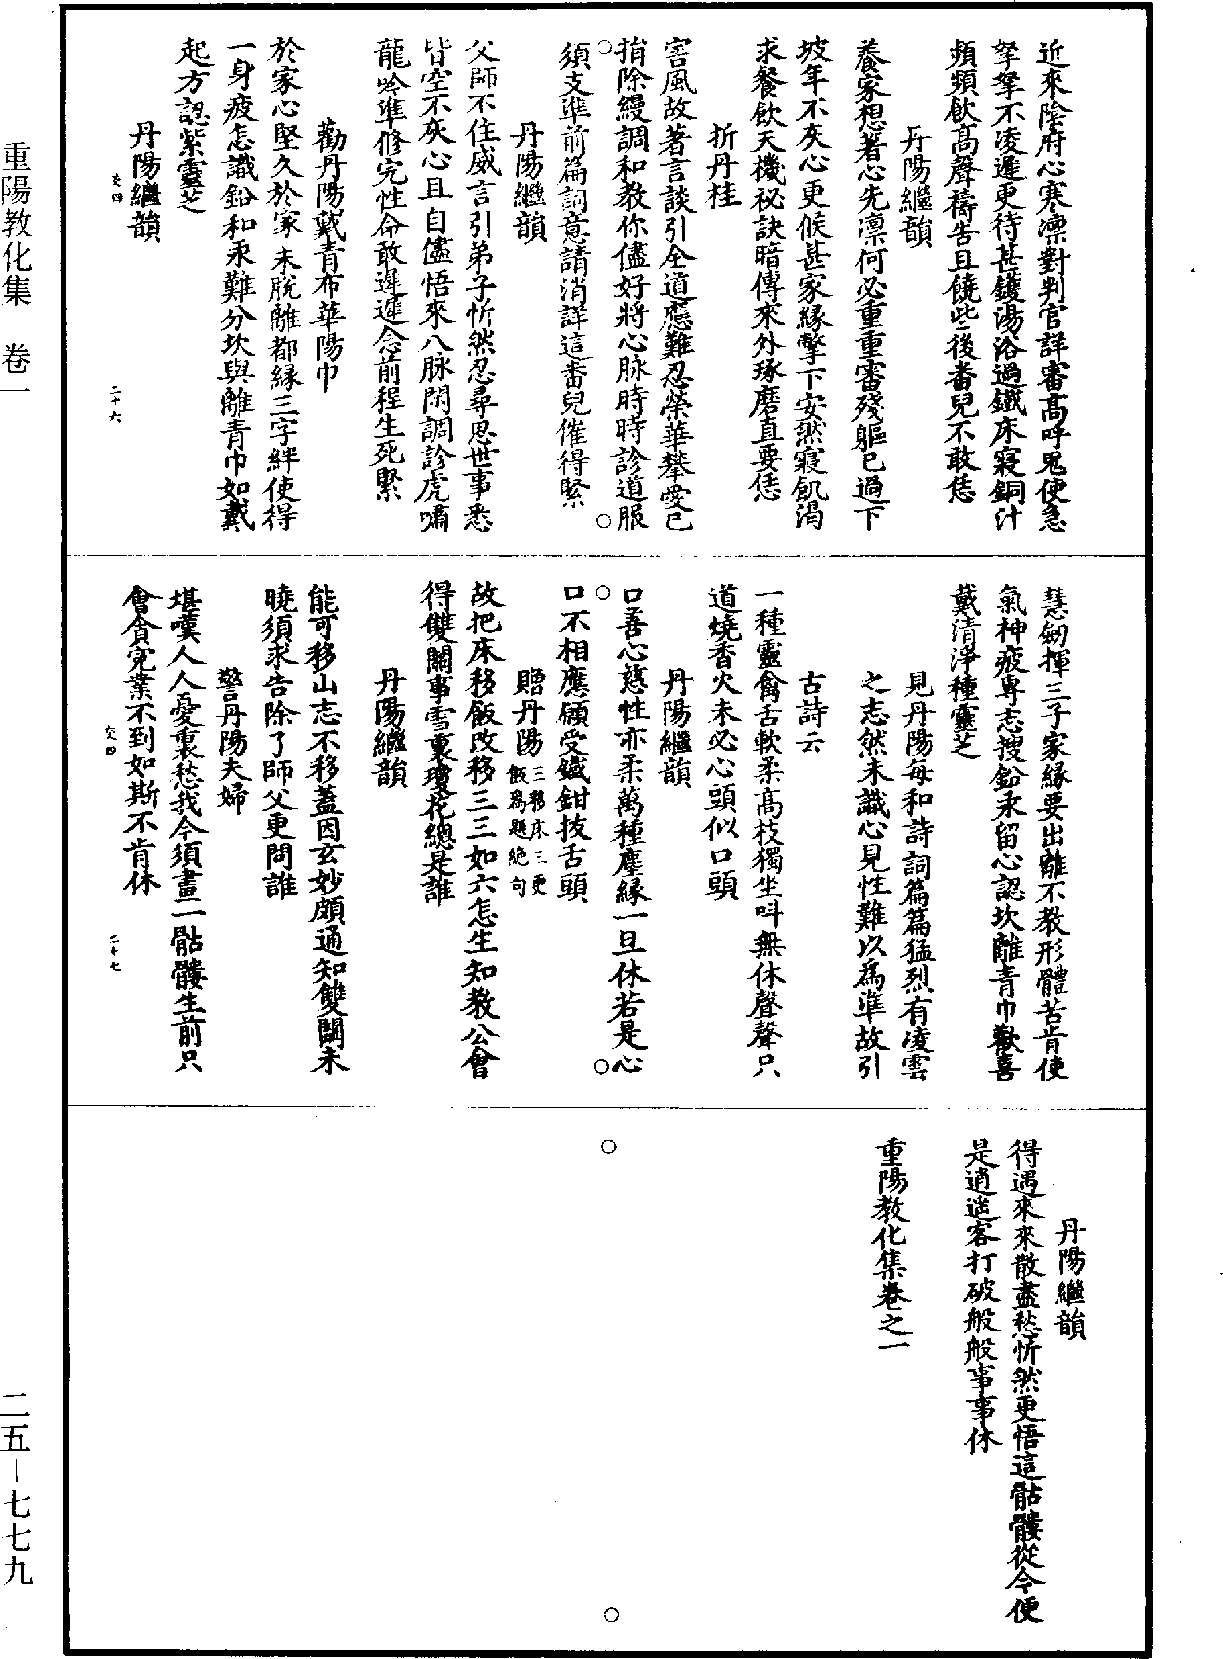 近來陰府心寒凜對判官詳審高呼鬼使急
拏拏不凌遲更待甚鑊湯浴過鐵床寢銅汁
頻頻飲高聲禱告且饒些後番兒不敢恁
丹陽繼韻
養家想著心先凛何必重重審殘軀已過下
坡年不灰心更候甚家緣撆下安然寢飢渴
求餐飲天機祕訣暗傳來外琢磨直要恁
折丹桂
害風故著言談引全道應難忍榮華攀愛已
揹除縵調和教你儘好將心脉時時診道服
須支準前篇詞意請消詳這番兒催得緊
丹陽繼韻
父師不住威言引弟子忻然忍尋思世事悉
皆空不灰心且自儘悟來八脉閑調診虎嘯
龍吟準修完性命敢遲遲念前程生死緊
勸丹陽戴青布華陽巾
於家心堅久於家未脫離都緣三字絆使得
一身疲怎識鉛和汞難分坎與離青巾如戴
起方認紫靈芝
丹陽繼韻
交四
二十六
慧劒揮三子家緣要出離不教形體苦肯使
氣神疲專志搜鉛汞留心認坎離青巾歡喜
戴清淨種靈芝
見丹陽每和詩詞篇篇猛烈有凌雲
之志然未識心見性難以為準故引
古詩云
一種靈禽舌軟柔高枝獨坐叫無休聲聲只
道燒香火未必心頭似口頭
丹陽繼韻
口善心慈性亦柔萬種塵緣一旦休若是心
口不相應願受鐵鉗拔舌頭
贈丹陽三移床三更飯為題絕句
故把床移飯改移三三如六怎生知教公會
得雙關事雪裏瓊花總是誰
丹陽繼韻
能可移山志不移蓋因玄妙頗通知雙關未
曉須求告除了師父更問誰
警丹陽夫婦
堪嘆人人憂裏愁我今須畫一骷髏生前只
會貪寃業不到如斯不肯休
交四
二十七
丹陽繼韻
得遇來來散盡愁忻然更悟這骷髏從今便
是逍遥客打破般般事事休
重陽教化集卷之一
重陽教化集　卷一
二五－七七九